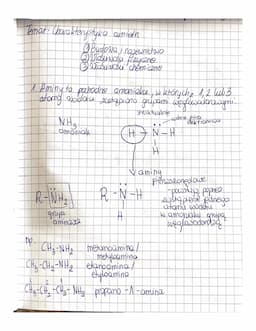 Temat: Charakterystyka amin
① Budowa i nazewnictwo
② Właściwości fizyczne
③ Właściwości chemiczne
1. Aminy to pochodne amoniaku, w których 1, 2 lub 3
atomy wodoru zastąpiono grupami węglowodorowymi.
NH₃
amoniak
H - N - H
H
aminy
R - NH₂
grupa
aminowa
R - N - H
H
pierwszorzędowe
- powstają poprzez
zastąpienie jednego
atomu wodoru
w amoniaku grupą
węglowodorową
np.
CH₃-NH₂ metanoamina/
metyloamina
CH₃-CH₂-NH₂ etanoamina/
etyloamina
CH₃-CH₂-CH₂-NH₂ propano-1-amina